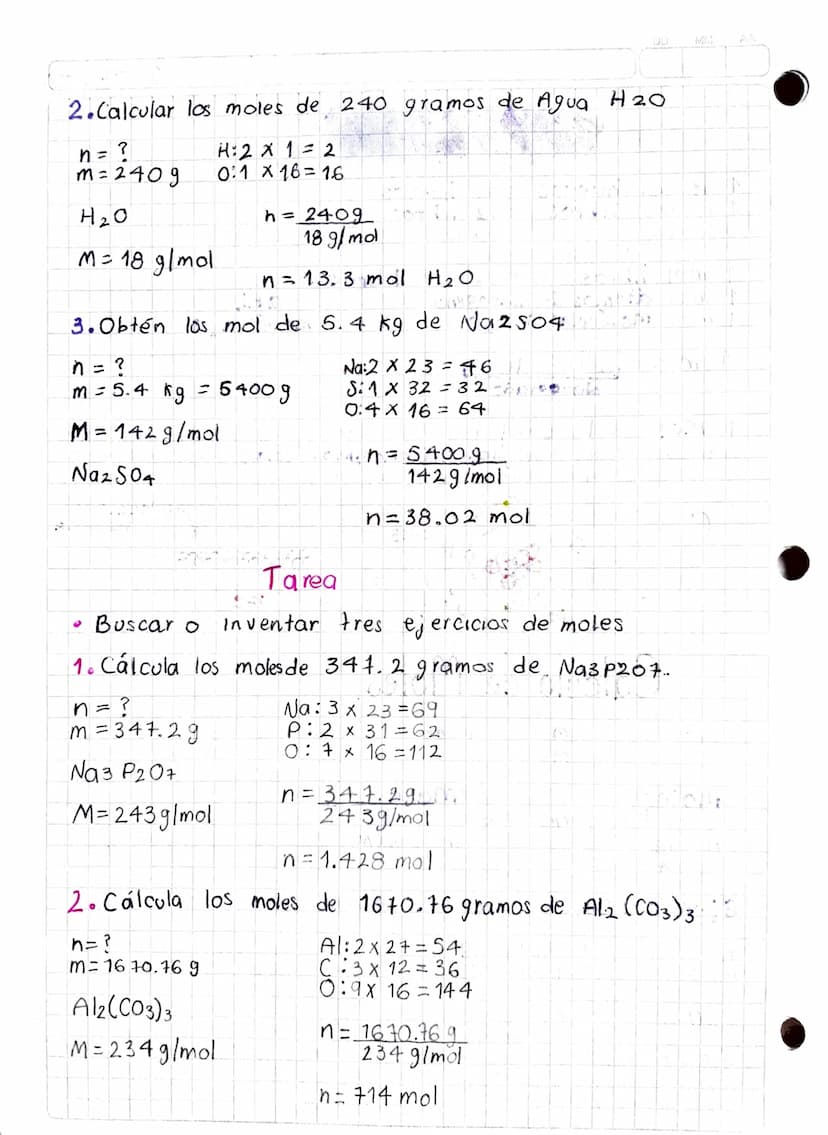 DD MM AA
2. Calcular los moles de 240 gramos de Agua H2O
n = ? H:2 x 1 = 2
m = 240 g O:1 x 16 = 16
H₂O n = 240g / 18 g/mol
M = 18 g/mol
n = 13.3 mol H₂O
3. Obtén los mol de 5.4 kg de Na2SO4
n = ? Na:2 x 23 = 46
m = 5.4 kg = 5400 g S:1 x 32 = 32
O:4 x 16 = 64
M = 142 g/mol
Na₂SO₄ n = 5400 g / 142 g/mol
n = 38.02 mol
Tarea
• Buscar o inventar tres ejercicios de moles
1. Cálcula los moles de 347.2 gramos de Na3P2O7.
n = ? Na: 3 x 23 = 69
m = 347.2 g P: 2 x 31 = 62
O: 7 x 16 = 112
Na3 P2O7
n = 347.2 g / 243 g/mol
M = 243 g/mol
n = 1.428 mol
2. Cálcula los moles de 1670.76 gramos de Al₂(CO₃)₃
n = ? Al: 2 x 27 = 54
m = 1670.76 g C: 3 x 12 = 36
O: 9 x 16 = 144
Al₂(CO₃)₃
n = 1670.76 g / 234 g/mol
M = 234 g/mol
n = 714 mol